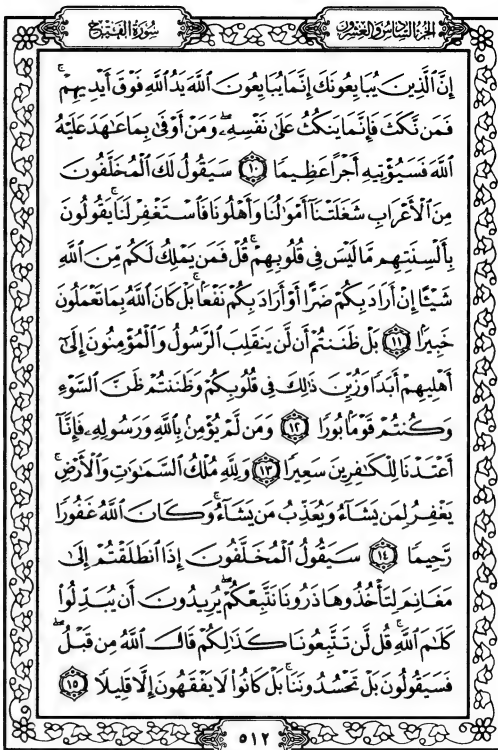 سُورَةُ الْفَتْحِ
الجُزْءُ السَّادِسُ وَالْعِشْرُونَ
إِنَّ ٱلَّذِينَ يُبَايِعُونَكَ إِنَّمَا يُبَايِعُونَ ٱللَّهَ يَدُ ٱللَّهِ فَوْقَ أَيْدِيهِمْ ۚ
فَمَن نَّكَثَ فَإِنَّمَا يَنكُثُ عَلَىٰ نَفْسِهِۦ ۖ وَمَنْ أَوْفَىٰ بِمَا عَٰهَدَ عَلَيْهُ
ٱللَّهَ فَسَيُؤْتِيهِ أَجْرًا عَظِيمًا ١٠ سَيَقُولُ لَكَ ٱلْمُخَلَّفُونَ
مِنَ ٱلْأَعْرَابِ شَغَلَتْنَآ أَمْوَٰلُنَا وَأَهْلُونَا فَٱسْتَغْفِرْ لَنَا ۚ يَقُولُونَ
بِأَلْسِنَتِهِم مَّا لَيْسَ فِى قُلُوبِهِمْ ۚ قُلْ فَمَن يَمْلِكُ لَكُم مِّنَ ٱللَّهِ
شَيْـًٔا إِنْ أَرَادَ بِكُمْ ضَرًّا أَوْ أَرَادَ بِكُمْ نَفْعًۢا ۚ بَلْ كَانَ ٱللَّهُ بِمَا تَعْمَلُونَ
خَبِيرًۢا ١١ بَلْ ظَنَنتُمْ أَن لَّن يَنقَلِبَ ٱلرَّسُولُ وَٱلْمُؤْمِنُونَ إِلَىٰٓ
أَهْلِيهِمْ أَبَدًا وَزُيِّنَ ذَٰلِكَ فِى قُلُوبِكُمْ وَظَنَنتُمْ ظَنَّ ٱلسَّوْءِ
وَكُنتُمْ قَوْمًۢا بُورًا ١٢ وَمَن لَّمْ يُؤْمِنۢ بِٱللَّهِ وَرَسُولِهِۦ فَإِنَّآ
أَعْتَدْنَا لِلْكَٰفِرِينَ سَعِيرًا ١٣ وَلِلَّهِ مُلْكُ ٱلسَّمَٰوَٰتِ وَٱلْأَرْضِ ۚ
يَغْفِرُ لِمَن يَشَآءُ وَيُعَذِّبُ مَن يَشَآءُ ۚ وَكَانَ ٱللَّهُ غَفُورًا
رَّحِيمًا ١٤ سَيَقُولُ ٱلْمُخَلَّفُونَ إِذَا ٱنطَلَقْتُمْ إِلَىٰ
مَغَانِمَ لِتَأْخُذُوهَا ذَرُونَا نَتَّبِعْكُمْ ۖ يُرِيدُونَ أَن يُبَدِّلُوا۟
كَلَٰمَ ٱللَّهِ ۚ قُل لَّن تَتَّبِعُونَا كَذَٰلِكُمْ قَالَ ٱللَّهُ مِن قَبْلُ ۖ
فَسَيَقُولُونَ بَلْ تَحْسُدُونَنَا ۚ بَلْ كَانُوا۟ لَا يَفْقَهُونَ إِلَّا قَلِيلًا ١٥
٥١٢